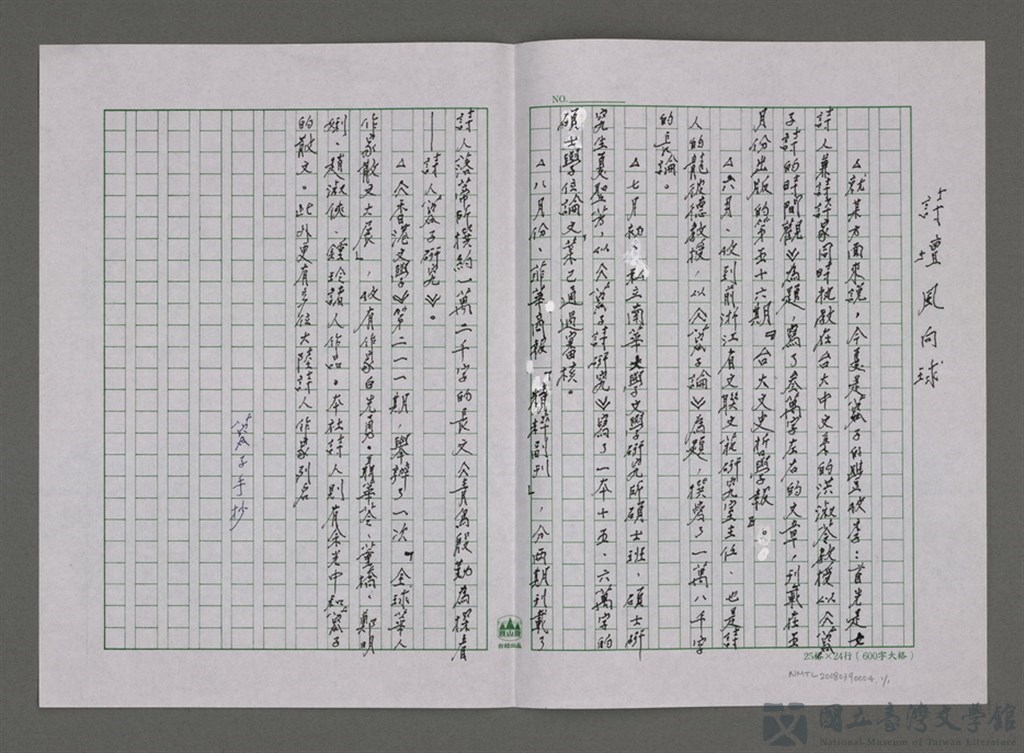 詩壇風向球
△就某方面來說，今夏是蓉子的豐收季：首先是女
詩人兼詩評家同時執教在台大中文系的洪淑苓教授以《蓉
子詩的時間觀》為題，寫了叁萬字左右的文章，刊載在五
月份出版的第五十六期『台大文史哲學報』。
△六月、收到前浙江省文聯文藝研究室主任、也是詩
人的龍彼德教授，以《蓉子論》為題，撰營了一萬八千字
的長論。
△七月初、私立南華大學文學研究所碩士班、碩士研
究生夏聖芳，以《蓉子詩研究》寫了一本十五、六萬字的
碩士學位論文業已通過審核。
△八月份、菲華商報『精粹副刊』，分兩期刊載了
詩人落蒂所撰約一萬二千字的長文《青鳥殷勤為探看
──詩人蓉子研究》。
△《香港文學》第二一一期，舉辦了一次『全球華人
作家散文大展』，收有作家白先勇、聶華苓、董橋、鄭明
娳、趙淑俠、鍾玲諸人作品。本社詩人則有余光中和蓉子
的散文。此外更有多位大陸詩人作家列名
蓉子手抄
NO.
25格×24行（600字大格）
NMTL20080390004, 1/1
國立臺灣文學館
National Museum of Taiwan Literature